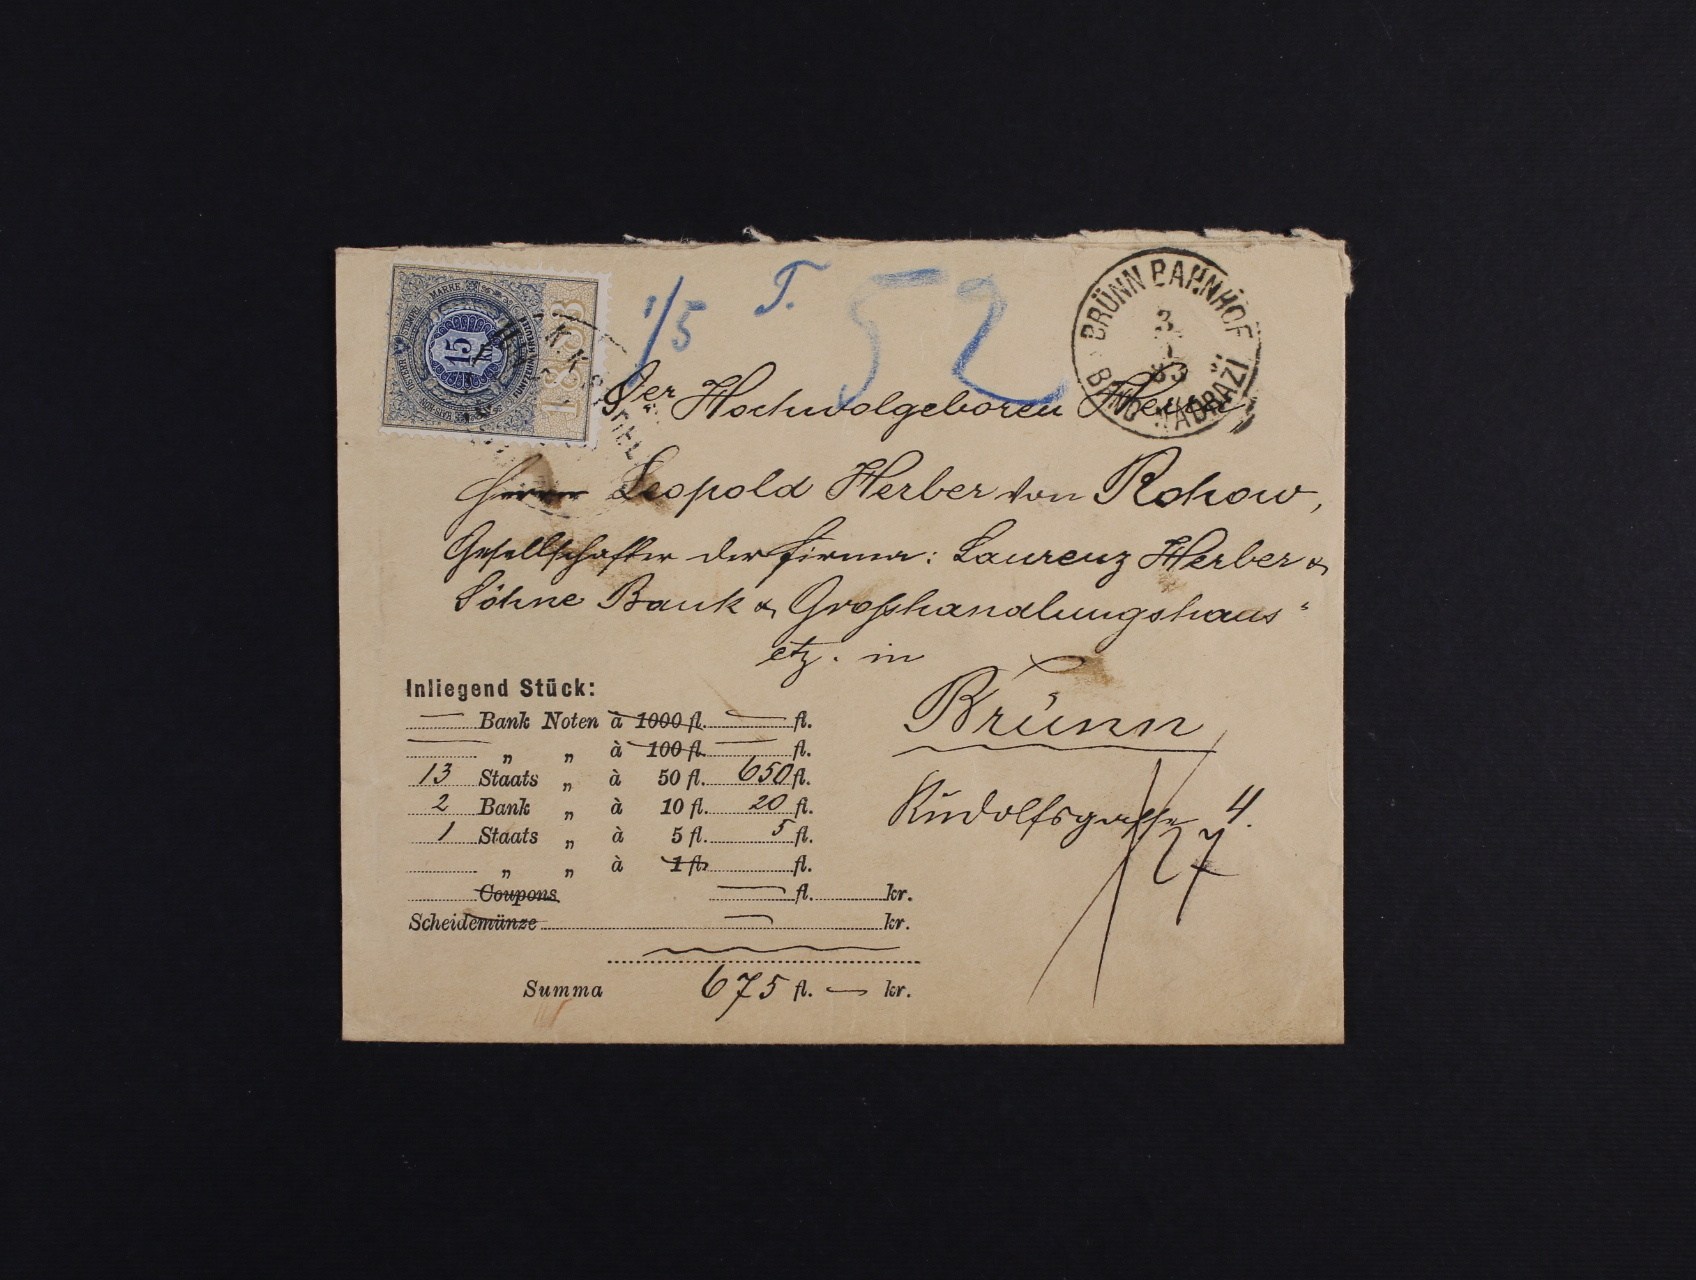 STEMPEL MARKE
15 kr
FÜNFZEHN KREUZER
1883
K.K.
1/5 T. 52
BRÜNN BAHNHOF
3
83
BRNO NÁDRAŽÍ
Der Hochwolgeboren Herrn
Herrn Leopold Herber von Rohow,
Gesellschafter der Firma: Laurenz Herber &
Söhne Bank & Großhandlungshaus"
etz. in
Brünn
Rudolfsgasse 4.
27
Inliegend Stück:
— Bank Noten à 1000 fl. — fl.
— „ „ à 100 fl. — fl.
13 Staats „ à 50 fl. 650 fl.
2 Bank „ à 10 fl. 20 fl.
1 Staats „ à 5 fl. 5 fl.
„ „ à 1 fl. fl.
Coupons — fl. kr.
Scheidemünze — kr.
Summa 675 fl. — kr.